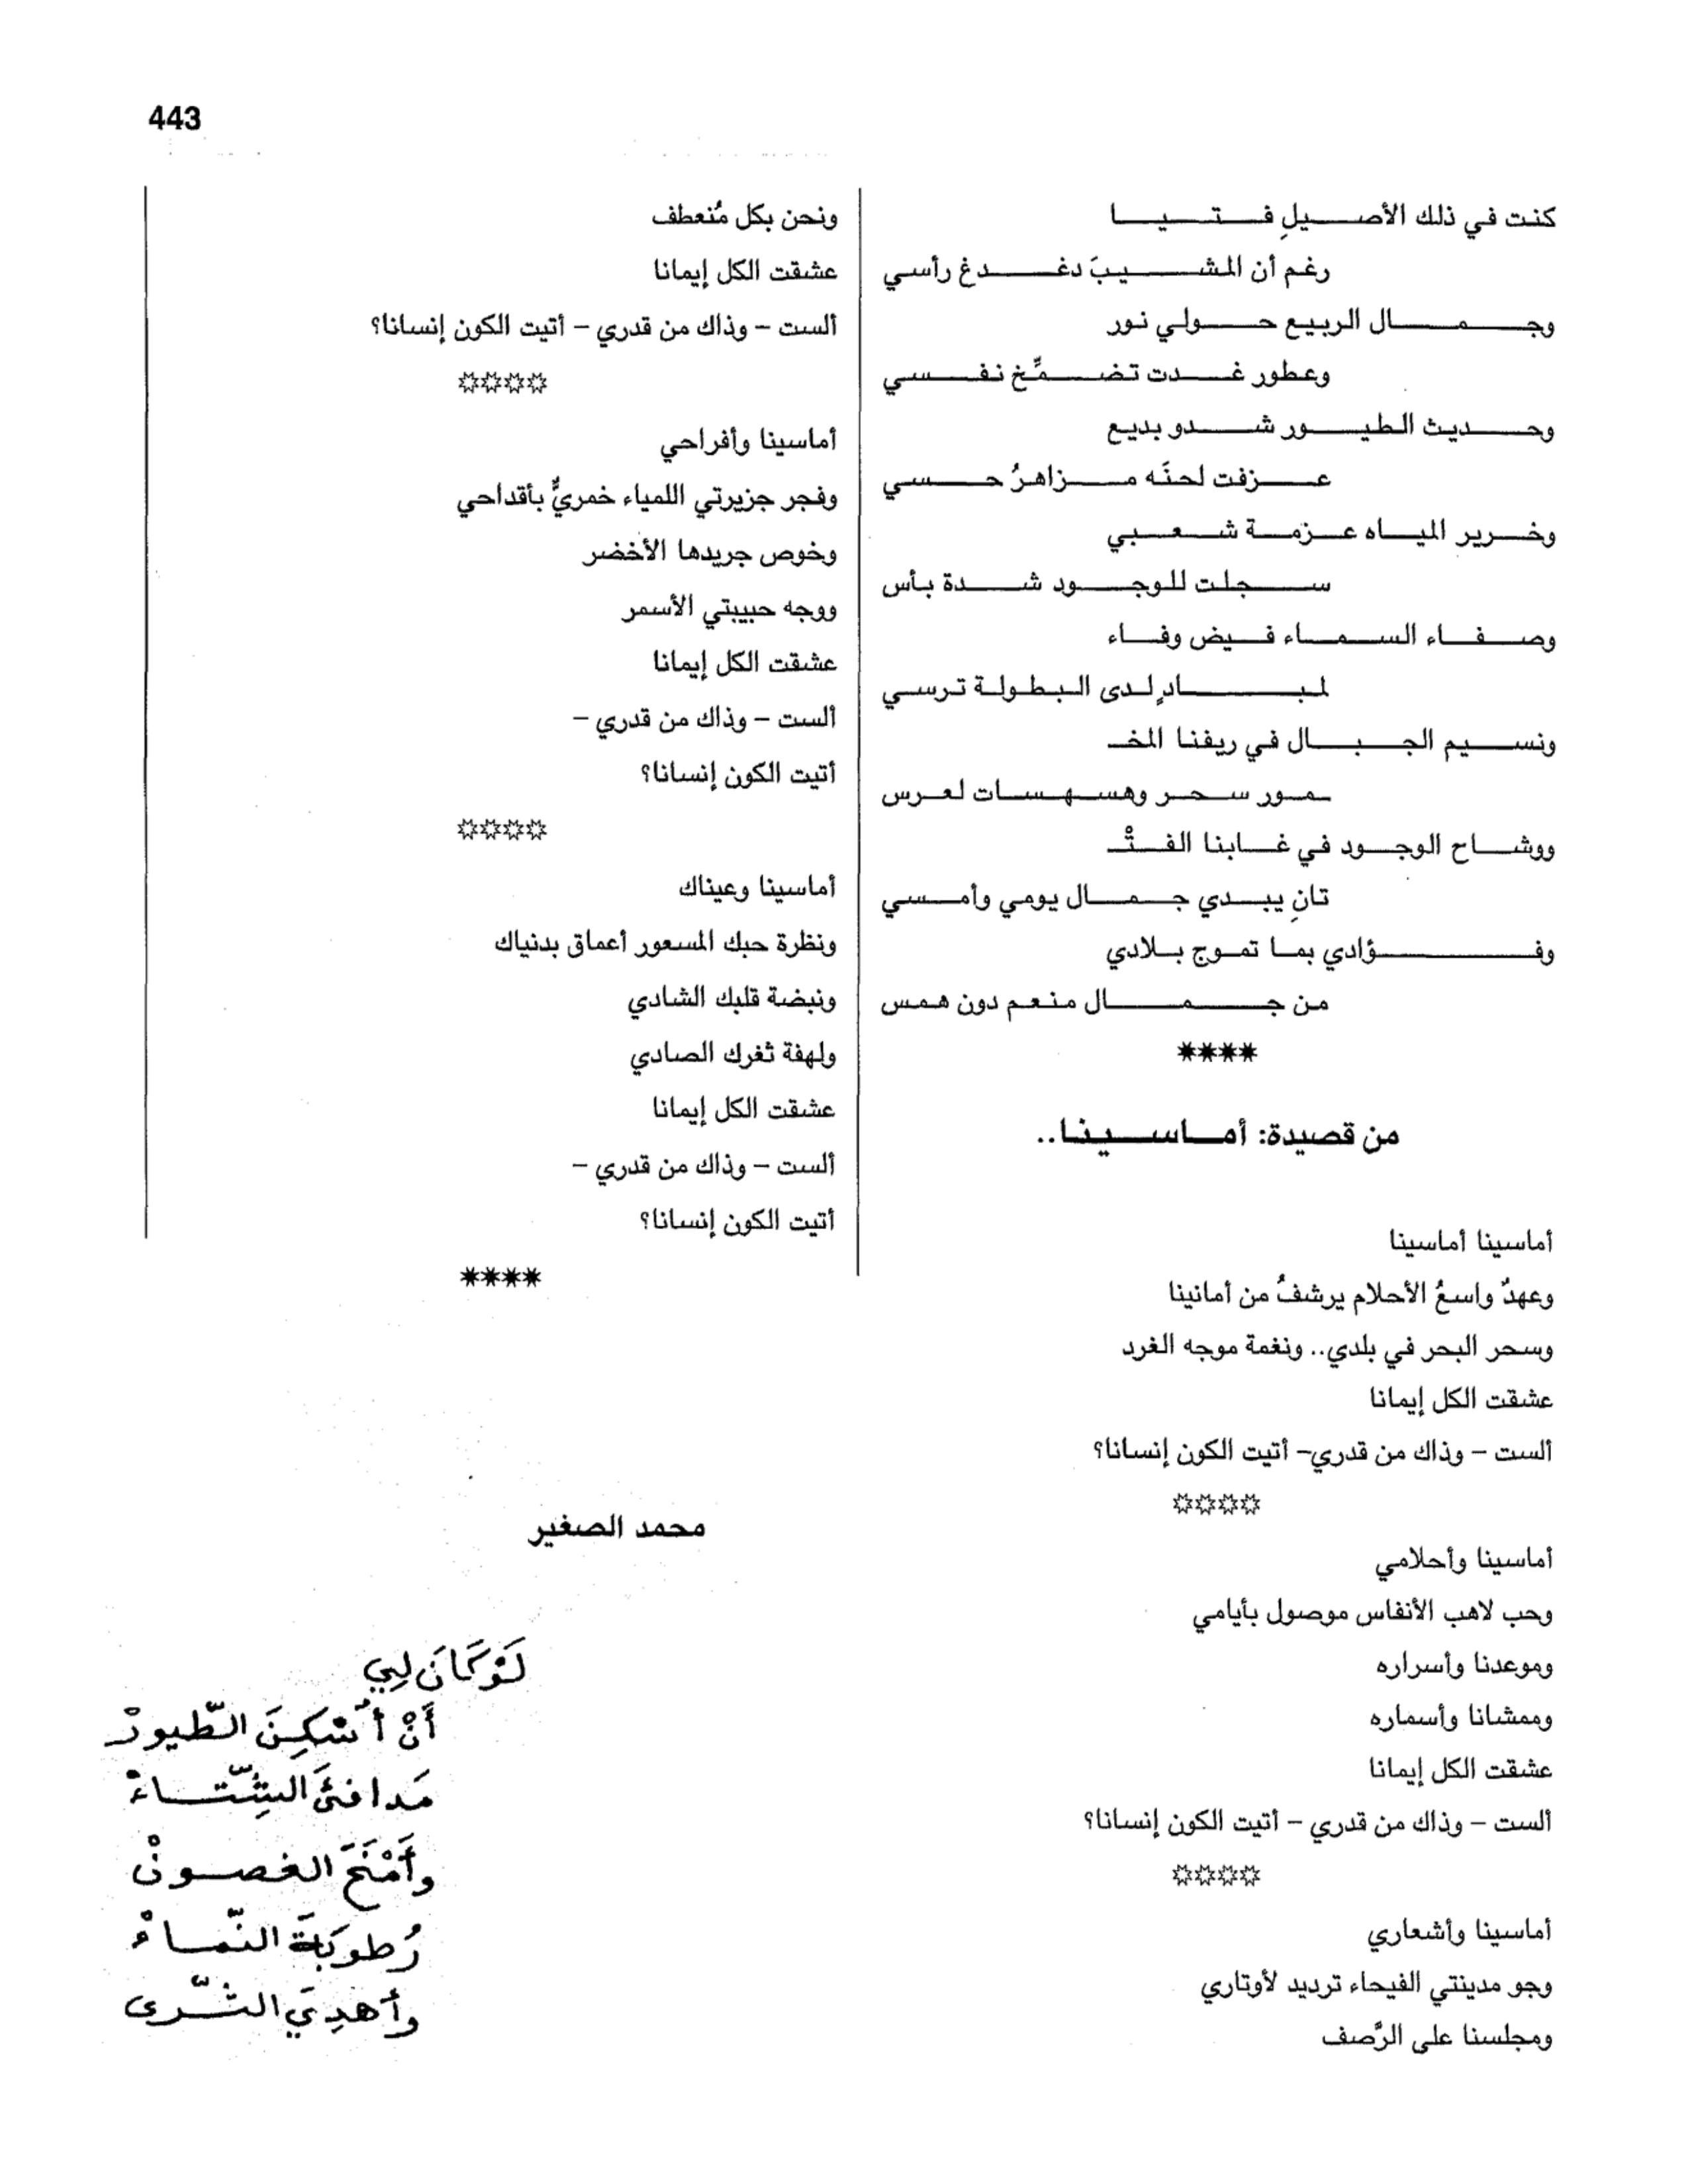 443
كنت في ذلك الأصيلِ فتيا
رغم أن المشيبَ دغدغ رأسي
وجمال الربيع حولي نور
وعطور غدت تضمِّخ نفسي
وحديث الطيور شدو بديع
عزفت لحنَه مزاهرُ حسي
وخرير المياه عزمة شعبي
سجلت للوجود شدة بأس
وصفاء السماء فيض وفاء
لمبادٍ لدى البطولة ترسي
ونسيم الجبال في ريفنا المخـ
ـمور سحر وهسهسات لعرس
ووشاح الوجود في غابنا الفتْـ
تانِ يبدي جمال يومي وأمسي
وفؤادي بما تموج بلادي
من جمال منعم دون همس
****
من قصيدة: أماسينا..
أماسينا أماسينا
وعهدٌ واسعُ الأحلام يرشفُ من أمانينا
وسحر البحر في بلدي.. ونغمة موجه الغرد
عشقت الكل إيمانا
ألست – وذاك من قدري– أتيت الكون إنسانا؟
☼☼☼☼
أماسينا وأحلامي
وحب لاهب الأنفاس موصول بأيامي
وموعدنا وأسراره
وممشانا وأسماره
عشقت الكل إيمانا
ألست – وذاك من قدري – أتيت الكون إنسانا؟
☼☼☼☼
أماسينا وأشعاري
وجو مدينتي الفيحاء ترديد لأوتاري
ومجلسنا على الرَّصف
ونحن بكل مُنعطف
عشقت الكل إيمانا
ألست – وذاك من قدري – أتيت الكون إنسانا؟
☼☼☼☼
أماسينا وأفراحي
وفجر جزيرتي اللمياء خمريٌّ بأقداحي
وخوص جريدها الأخضر
ووجه حبيبتي الأسمر
عشقت الكل إيمانا
ألست – وذاك من قدري –
أتيت الكون إنسانا؟
☼☼☼☼
أماسينا وعيناك
ونظرة حبك المسعور أعماق بدنياك
ونبضة قلبك الشادي
ولهفة ثغرك الصادي
عشقت الكل إيمانا
ألست – وذاك من قدري –
أتيت الكون إنسانا؟
****
محمد الصغير
لَوْ كَانَ لِي
أَنْ أُسْكِنَ الطّيورْ
مَدافئَ الشِّتّاءْ
وأَمْنَحَ الغصونْ
رُطوبَةَ النّماءْ
وأهدِيَ الثّرى